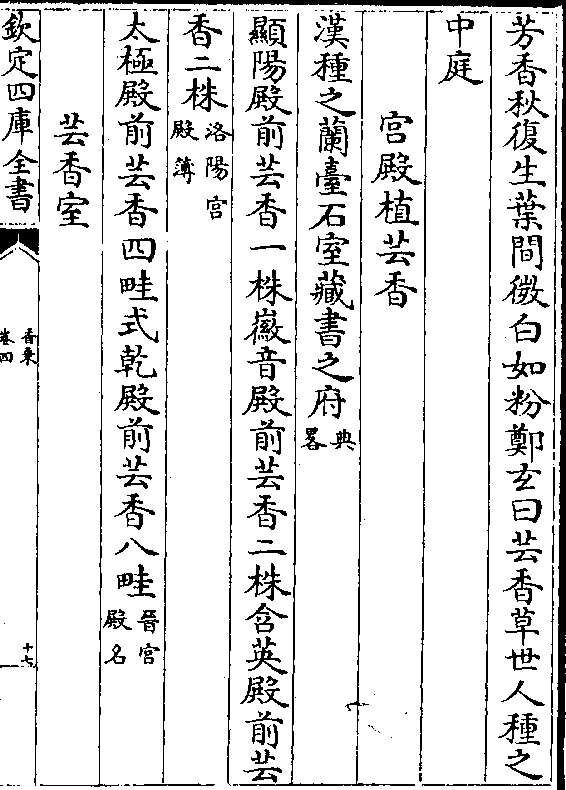 芳香秋復生葉間微白如粉鄭玄曰芸香草世人種之
中庭
宫殿植芸香
漢種之蘭臺石室藏書之府典畧
顯陽殿前芸香一株徽音殿前芸香二株含英殿前芸
香二株洛陽宫殿簿
太極殿前芸香四畦式乾殿前芸香八畦晉宫殿名
芸香室
欽定四庫全書
香乘
卷四
十七